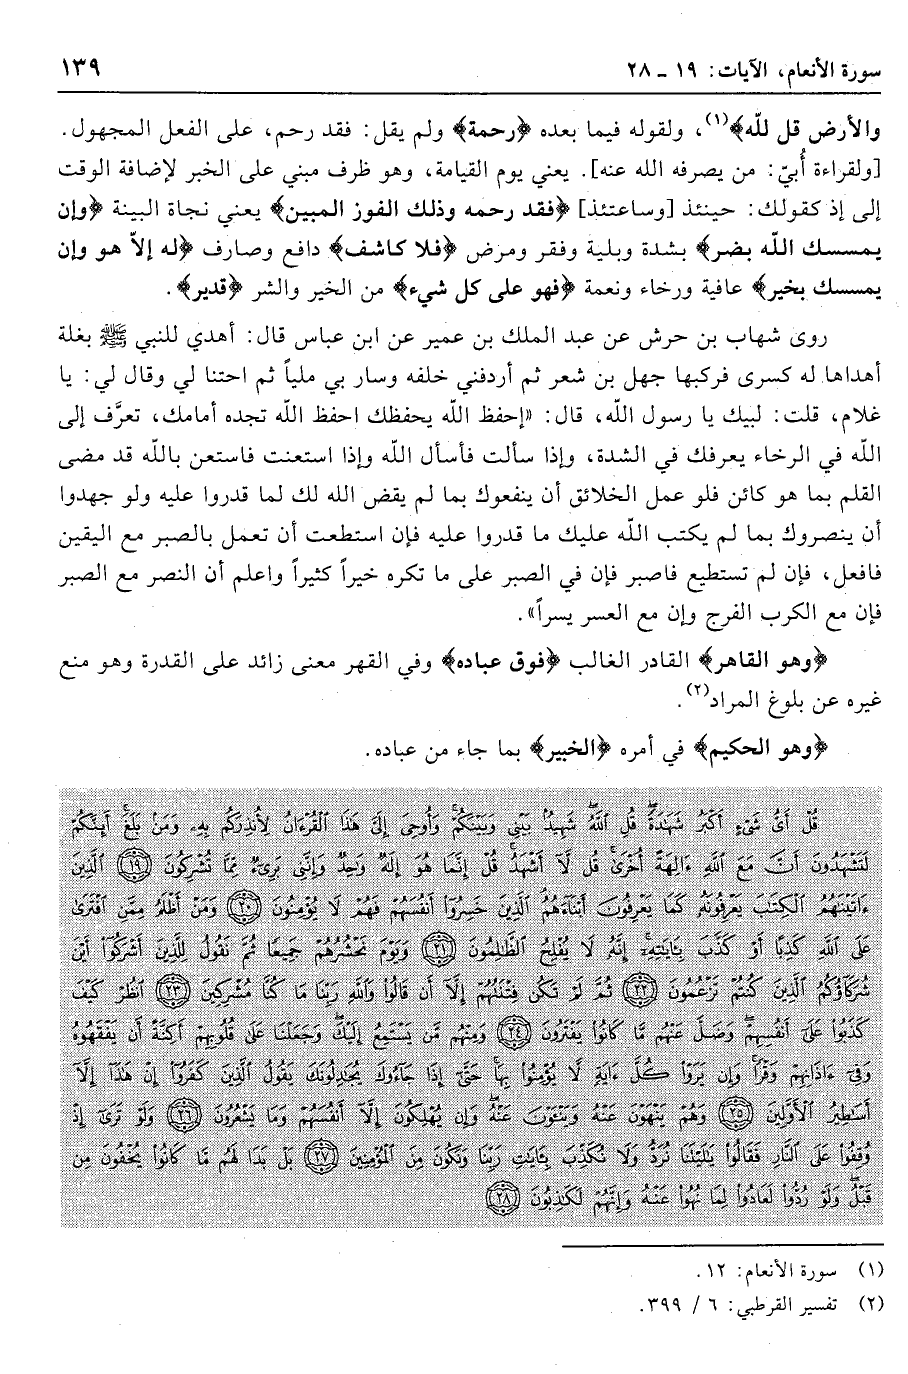 سورة الأنعام، الآيات: ١٩ ـ ٢٨
١٣٩
والأرض قل للّه﴾(١)، ولقوله فيما بعده ﴿رحمة﴾ ولم يقل: فقد رحم، على الفعل المجهول.
[ولقراءة أُبيّ: من يصرفه الله عنه]. يعني يوم القيامة، وهو ظرف مبني على الخبر لإضافة الوقت
إلى إذ كقولك: حينئذ [وساعتئذ] ﴿فقد رحمه وذلك الفوز المبين﴾ يعني نجاة البينة ﴿وإن
يمسسك اللّه بضر﴾ بشدة وبلية وفقر ومرض ﴿فلا كاشف﴾ دافع وصارف ﴿له إلاّ هو وإن
يمسسك بخير﴾ عافية ورخاء ونعمة ﴿فهو على كل شيء﴾ من الخير والشر ﴿قدير﴾.
روى شهاب بن حرش عن عبد الملك بن عمير عن ابن عباس قال: أهدي للنبي ﷺ بغلة
أهداها له كسرى فركبها جهل بن شعر ثم أردفني خلفه وسار بي ملياً ثم احتنا لي وقال لي: يا
غلام، قلت: لبيك يا رسول اللّه، قال: «إحفظ اللّه يحفظك احفظ اللّه تجده أمامك، تعرَّف إلى
اللّه في الرخاء يعرفك في الشدة، وإذا سألت فأسأل اللّه وإذا استعنت فاستعن باللّه قد مضى
القلم بما هو كائن فلو عمل الخلائق أن ينفعوك بما لم يقض اللّه لك لما قدروا عليه ولو جهدوا
أن ينصروك بما لم يكتب اللّه عليك ما قدروا عليه فإن استطعت أن تعمل بالصبر مع اليقين
فافعل، فإن لم تستطيع فاصبر فإن في الصبر على ما تكره خيراً كثيراً واعلم أن النصر مع الصبر
فإن مع الكرب الفرج وإن مع العسر يسراً».
﴿وهو القاهر﴾ القادر الغالب ﴿فوق عباده﴾ وفي القهر معنى زائد على القدرة وهو منع
غيره عن بلوغ المراد(٢).
﴿وهو الحكيم﴾ في أمره ﴿الخبير﴾ بما جاء من عباده.
قُلْ أَىُّ شَىْءٍ أَكْبَرُ شَهَٰدَةً ۖ قُلِ ٱللَّهُ ۖ شَهِيدٌۢ بَيْنِى وَبَيْنَكُمْ ۚ وَأُوحِىَ إِلَىَّ هَٰذَا ٱلْقُرْءَانُ لِأُنذِرَكُم بِهِۦ وَمَنۢ بَلَغَ ۚ أَئِنَّكُمْ
لَتَشْهَدُونَ أَنَّ مَعَ ٱللَّهِ ءَالِهَةً أُخْرَىٰ ۚ قُل لَّآ أَشْهَدُ ۚ قُلْ إِنَّمَا هُوَ إِلَٰهٌ وَٰحِدٌ وَإِنَّنِى بَرِىٓءٌ مِّمَّا تُشْرِكُونَ ﴿١٩﴾ ٱلَّذِينَ
ءَاتَيْنَٰهُمُ ٱلْكِتَٰبَ يَعْرِفُونَهُۥ كَمَا يَعْرِفُونَ أَبْنَآءَهُمُ ٱلَّذِينَ خَسِرُوٓا۟ أَنفُسَهُمْ فَهُمْ لَا يُؤْمِنُونَ ﴿٢٠﴾ وَمَنْ أَظْلَمُ مِمَّنِ ٱفْتَرَىٰ
عَلَى ٱللَّهِ كَذِبًا أَوْ كَذَّبَ بِـَٔايَٰتِهِۦٓ ۗ إِنَّهُۥ لَا يُفْلِحُ ٱلظَّٰلِمُونَ ﴿٢١﴾ وَيَوْمَ نَحْشُرُهُمْ جَمِيعًا ثُمَّ نَقُولُ لِلَّذِينَ أَشْرَكُوٓا۟ أَيْنَ
شُرَكَآؤُكُمُ ٱلَّذِينَ كُنتُمْ تَزْعُمُونَ ﴿٢٢﴾ ثُمَّ لَمْ تَكُن فِتْنَتُهُمْ إِلَّآ أَن قَالُوا۟ وَٱللَّهِ رَبِّنَا مَا كُنَّا مُشْرِكِينَ ﴿٢٣﴾ ٱنظُرْ كَيْفَ
كَذَبُوا۟ عَلَىٰٓ أَنفُسِهِمْ ۚ وَضَلَّ عَنْهُم مَّا كَانُوا۟ يَفْتَرُونَ ﴿٢٤﴾ وَمِنْهُم مَّن يَسْتَمِعُ إِلَيْكَ ۖ وَجَعَلْنَا عَلَىٰ قُلُوبِهِمْ أَكِنَّةً أَن يَفْقَهُوهُ
وَفِىٓ ءَاذَانِهِمْ وَقْرًا ۚ وَإِن يَرَوْا۟ كُلَّ ءَايَةٍ لَّا يُؤْمِنُوا۟ بِهَا ۚ حَتَّىٰٓ إِذَا جَآءُوكَ يُجَٰدِلُونَكَ يَقُولُ ٱلَّذِينَ كَفَرُوٓا۟ إِنْ هَٰذَآ إِلَّآ
أَسَٰطِيرُ ٱلْأَوَّلِينَ ﴿٢٥﴾ وَهُمْ يَنْهَوْنَ عَنْهُ وَيَنْـَٔوْنَ عَنْهُ ۖ وَإِن يُهْلِكُونَ إِلَّآ أَنفُسَهُمْ وَمَا يَشْعُرُونَ ﴿٢٦﴾ وَلَوْ تَرَىٰٓ إِذْ
وُقِفُوا۟ عَلَى ٱلنَّارِ فَقَالُوا۟ يَٰلَيْتَنَا نُرَدُّ وَلَا نُكَذِّبَ بِـَٔايَٰتِ رَبِّنَا وَنَكُونَ مِنَ ٱلْمُؤْمِنِينَ ﴿٢٧﴾ بَلْ بَدَا لَهُم مَّا كَانُوا۟ يُخْفُونَ مِن
قَبْلُ ۖ وَلَوْ رُدُّوا۟ لَعَادُوا۟ لِمَا نُهُوا۟ عَنْهُ وَإِنَّهُمْ لَكَٰذِبُونَ ﴿٢٨﴾
(١) سورة الأنعام: ١٢.
(٢) تفسير القرطبي: ٦ / ٣٩٩.